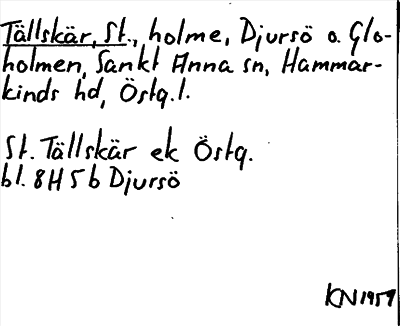 Tällskär, St., holme, Djursö o. Glo-
holmen, Sankt Anna sn, Hammar-
kinds hd, Östg. l.
St. Tällskär ek Östg.
bl. 8H 5 b Djursö
KN 1957